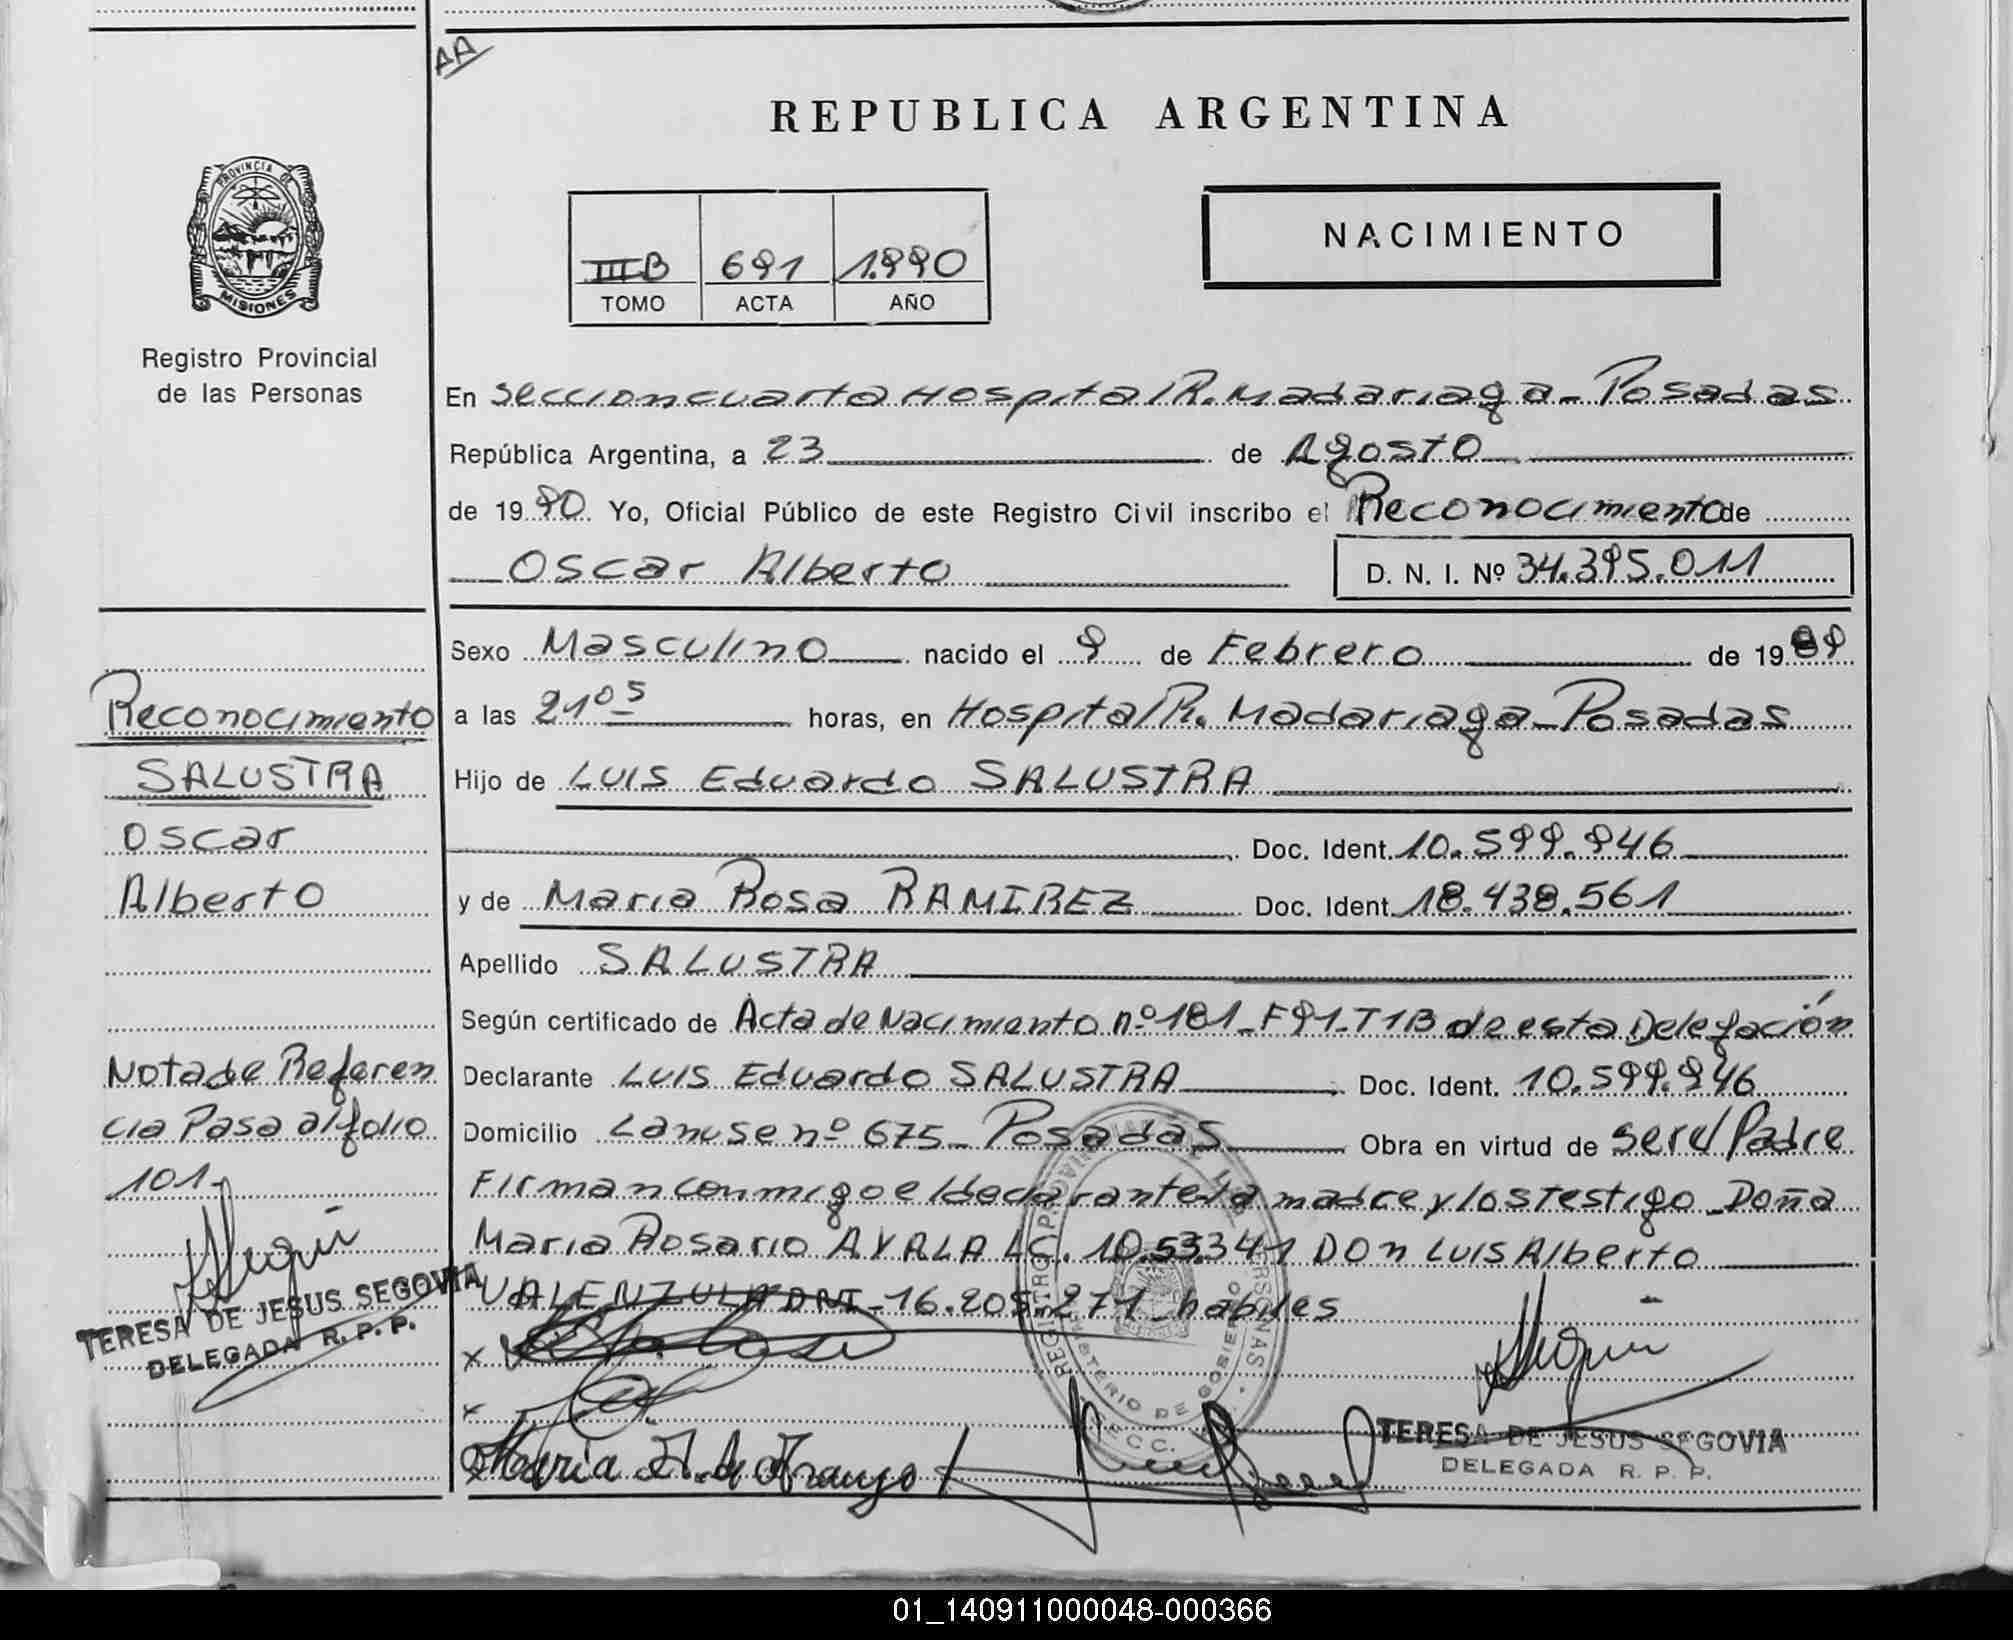 AA
REPUBLICA ARGENTINA
PROVINCIA DE
MISIONES
Registro Provincial
de las Personas
IIIB 691 1.990
TOMO ACTA AÑO
NACIMIENTO
En Seccion cuarta Hospital R. Madariaga - Posadas
República Argentina, a 23 de Agosto
de 1990 Yo, Oficial Público de este Registro Civil inscribo el Reconocimiento de
Oscar Alberto D. N. I. Nº 34.395.011
Sexo Masculino nacido el 9 de Febrero de 1989
a las 21 05 horas, en Hospital R. Madariaga - Posadas
Hijo de Luis Eduardo SALUSTRA
Doc. Ident. 10.599.946
y de Maria Rosa RAMIREZ Doc. Ident. 18.438.561
Apellido SALUSTRA
Según certificado de Acta de Nacimiento nº 181 - F91 - T1B de esta Delegación
Declarante Luis Eduardo SALUSTRA Doc. Ident. 10.599.946
Domicilio Lanuse nº 675 - Posadas Obra en virtud de ser el Padre
Firman conmigo el declarante la madre y los testigo - Doña
Maria Rosario AYALA LC. 10.53.341 Don Luis Alberto
VALENZULA DNI - 16.205.271 habiles
x
x
Maria A. de Araujo
TERESA DE JESUS SEGOVIA
DELEGADA R. P. P.
REGISTRO PROVINCIAL DE LAS PERSONAS
MINISTERIO DE GOBIERNO
Reconocimiento
SALUSTRA
Oscar
Alberto
Nota de Referen
cia Pasa al folio
101-
TERESA DE JESUS SEGOVIA
DELEGADA R. P. P.
01_140911000048-000366